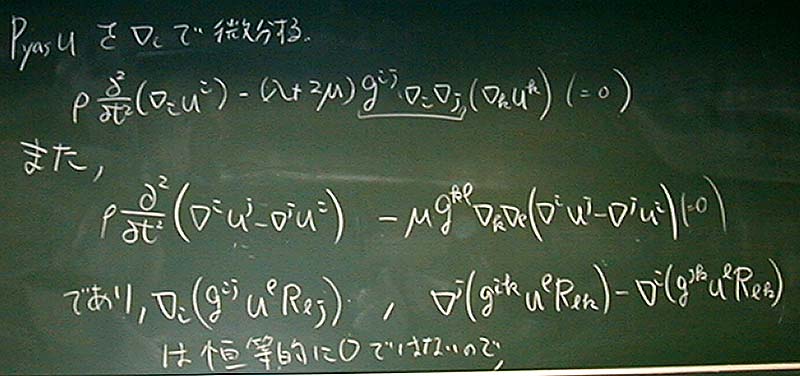 P_yas u を ∇_i で微分する。
ρ ∂²/∂t² (∇_i u^i) - (λ+2μ) g^{ij} ∇_i ∇_j (∇_k u^k) (=0)
また,
ρ ∂²/∂t² (∇^i u^j - ∇^j u^i) - μ g^{kl} ∇_k ∇_l (∇^i u^j - ∇^j u^i) (=0)
であり, ∇_i (g^{ij} u^l R_{lj}) , ∇^j (g^{ik} u^l R_{lk}) - ∇^i (g^{jk} u^l R_{lk})
は恒等的に0ではないので,